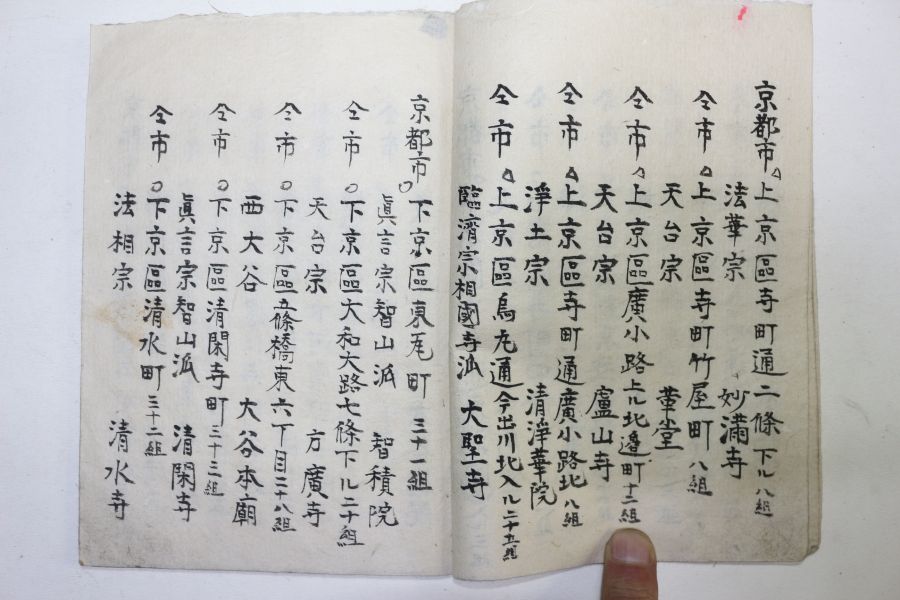 京都市 上京區寺町通二條下ル 八組
法華宗 妙滿寺
仝市 上京區寺町竹屋町 八組
天台宗 革堂
仝市 上京區廣小路上ル北邉町 十二組
天台宗 盧山寺
仝市 上京區寺町通廣小路北 八組
淨土宗 清淨華院
仝市 上京區烏丸通今出川北入ル 二十五組
臨濟宗相國寺派 大聖寺
京都市 下京區東瓦町 三十一組
眞言宗智山派 智積院
仝市 下京區大和大路七條下ル 二十組
天台宗 方廣寺
仝市 下京區五條橋東六丁目 二十八組
西大谷 大谷本廟
仝市 下京區清閑寺町 三十三組
眞言宗智山派 清閑寺
仝市 下京區清水町 三十二組
法相宗 清水寺